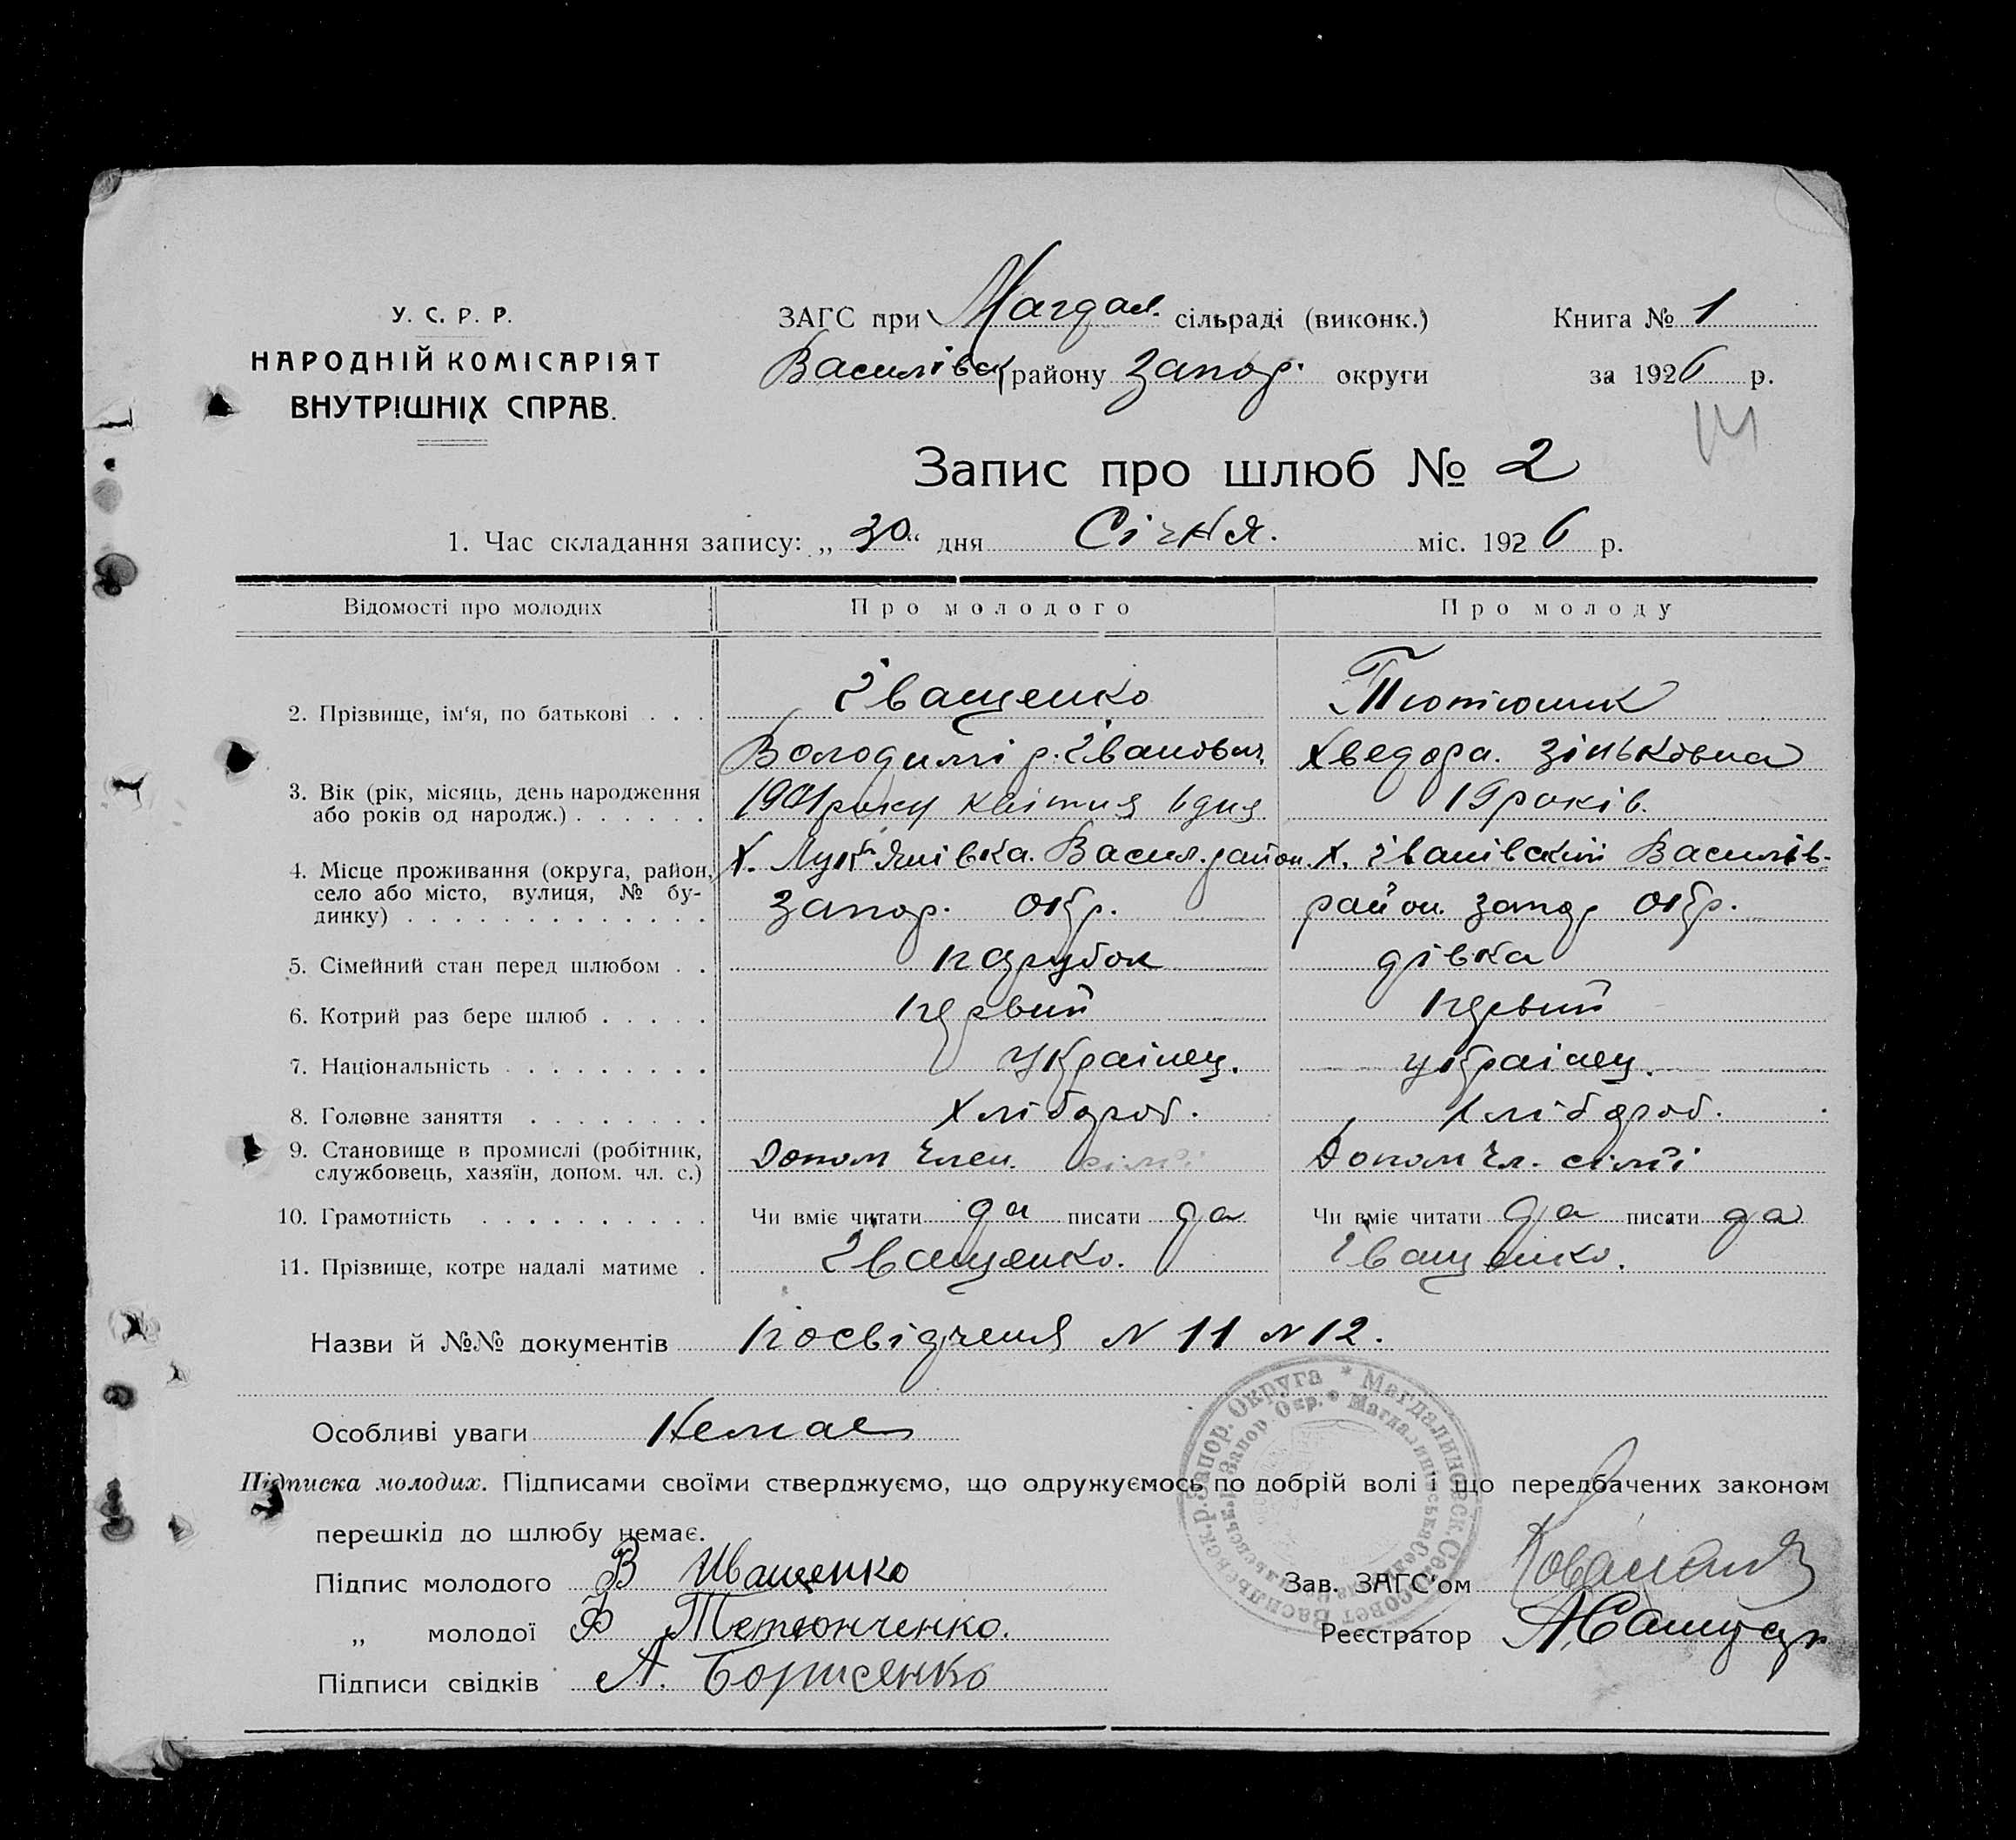 У. С. Р. Р.
НАРОДНІЙ КОМІСАРІЯТ
ВНУТРІШНІХ СПРАВ.
ЗАГС при Магдал. сільраді (виконк.)
Василівськ району Запор. округи
Книга № 1
за 1926 р.
14
Запис про шлюб № 2
1. Час складання запису: „30“ дня Січня. міс. 1926 р.
Відомості про молодих Про молодого Про молоду
2. Прізвище, ім'я, по батькові . . . Іващенко Тютюник
Володимір. Іванович Хведора. Зіньковна
3. Вік (рік, місяць, день народження
або років од народж.) . . . . . . 1901 року квітня 6 дня 19 років.
4. Місце проживання (округа, район, х. Лук'янівка. Васил. район. х. Іванівский Василів-
село або місто, вулиця, № бу-
динку) . . . . . . . . . . . . . Запор. окр. район. Запор окр.
5. Сімейний стан перед шлюбом . . парубок дівка
6. Котрий раз бере шлюб . . . . . первий первий
7. Національність . . . . . . . . . Українец. українец.
8. Головне заняття . . . . . . . . хлібороб. хлібороб.
9. Становище в промислі (робітник,
службовець, хазяїн, допом. чл. с.) Допом член. сімї Допом чл. сімї
10. Грамотність . . . . . . . . . . Чи вміє читати да писати да Чи вміє читати да писати да
11. Прізвище, котре надалі матиме . Іващенко. Іващенко.
Назви й №№ документів посвідченя N 11 N 12.
Особливі уваги Немає
Підписка молодих. Підписами своїми стверджуємо, що одружуємось по добрій волі і що передбачених законом
перешкід до шлюбу немає.
Підпис молодого В Иващенко
„ молодої Ф Тетюнченко.
Підписи свідків А. Борисенко
Зав. ЗАГС'ом
Реєстратор